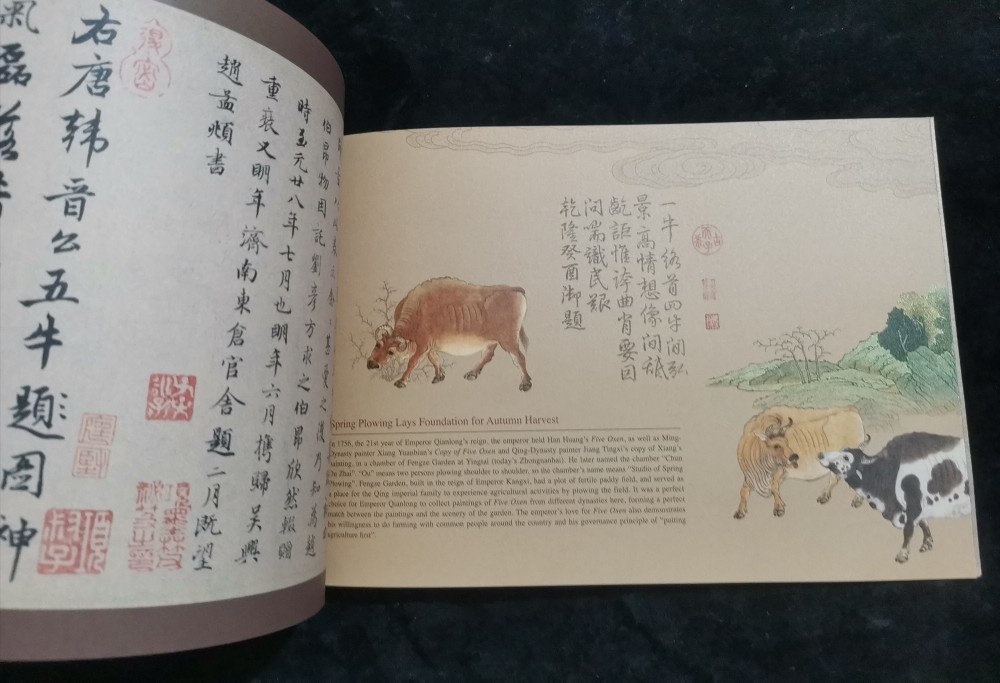 伯昂物因託劉彥方求之伯昂欣然輟贈
時至元廿八年七月也明年六月攜歸吳興
重裝又明年濟南東倉官舍題二月既望
趙孟頫書
右唐韓晉公五牛題圖神
氣磊落
一牛絡首四牛閒弘
景高情想像間舐
齕詎惟誇曲肖要因
問喘識民艱
乾隆癸酉御題
Spring Plowing Lays Foundation for Autumn Harvest
In 1756, the 21st year of Emperor Qianlong's reign, the emperor held Han Huang's Five Oxen, as well as Ming-
Dynasty painter Xiang Yuanbian's Copy of Five Oxen and Qing-Dynasty painter Jiang Tingxi's copy of Xiang's
painting, in a chamber of Fengze Garden at Yingtai (today's Zhongnanhai). He later named the chamber "Chun
Ou Zhai" "Ou" means two persons plowing shoulder to shoulder, so the chamber's name means "Studio of Spring
Plowing". Fengze Garden, built in the reign of Emperor Kangxi, had a plot of fertile paddy field, and served as
a place for the Qing imperial family to experience agricultural activities by plowing the field. It was a perfect
choice for Emperor Qianlong to collect paintings of Five Oxen from different dynasties here, forming a perfect
match between the paintings and the scenery of the garden. The emperor's love for Five Oxen also demonstrates
his willingness to do farming with common people around the country and his governance principle of "putting
agriculture first".